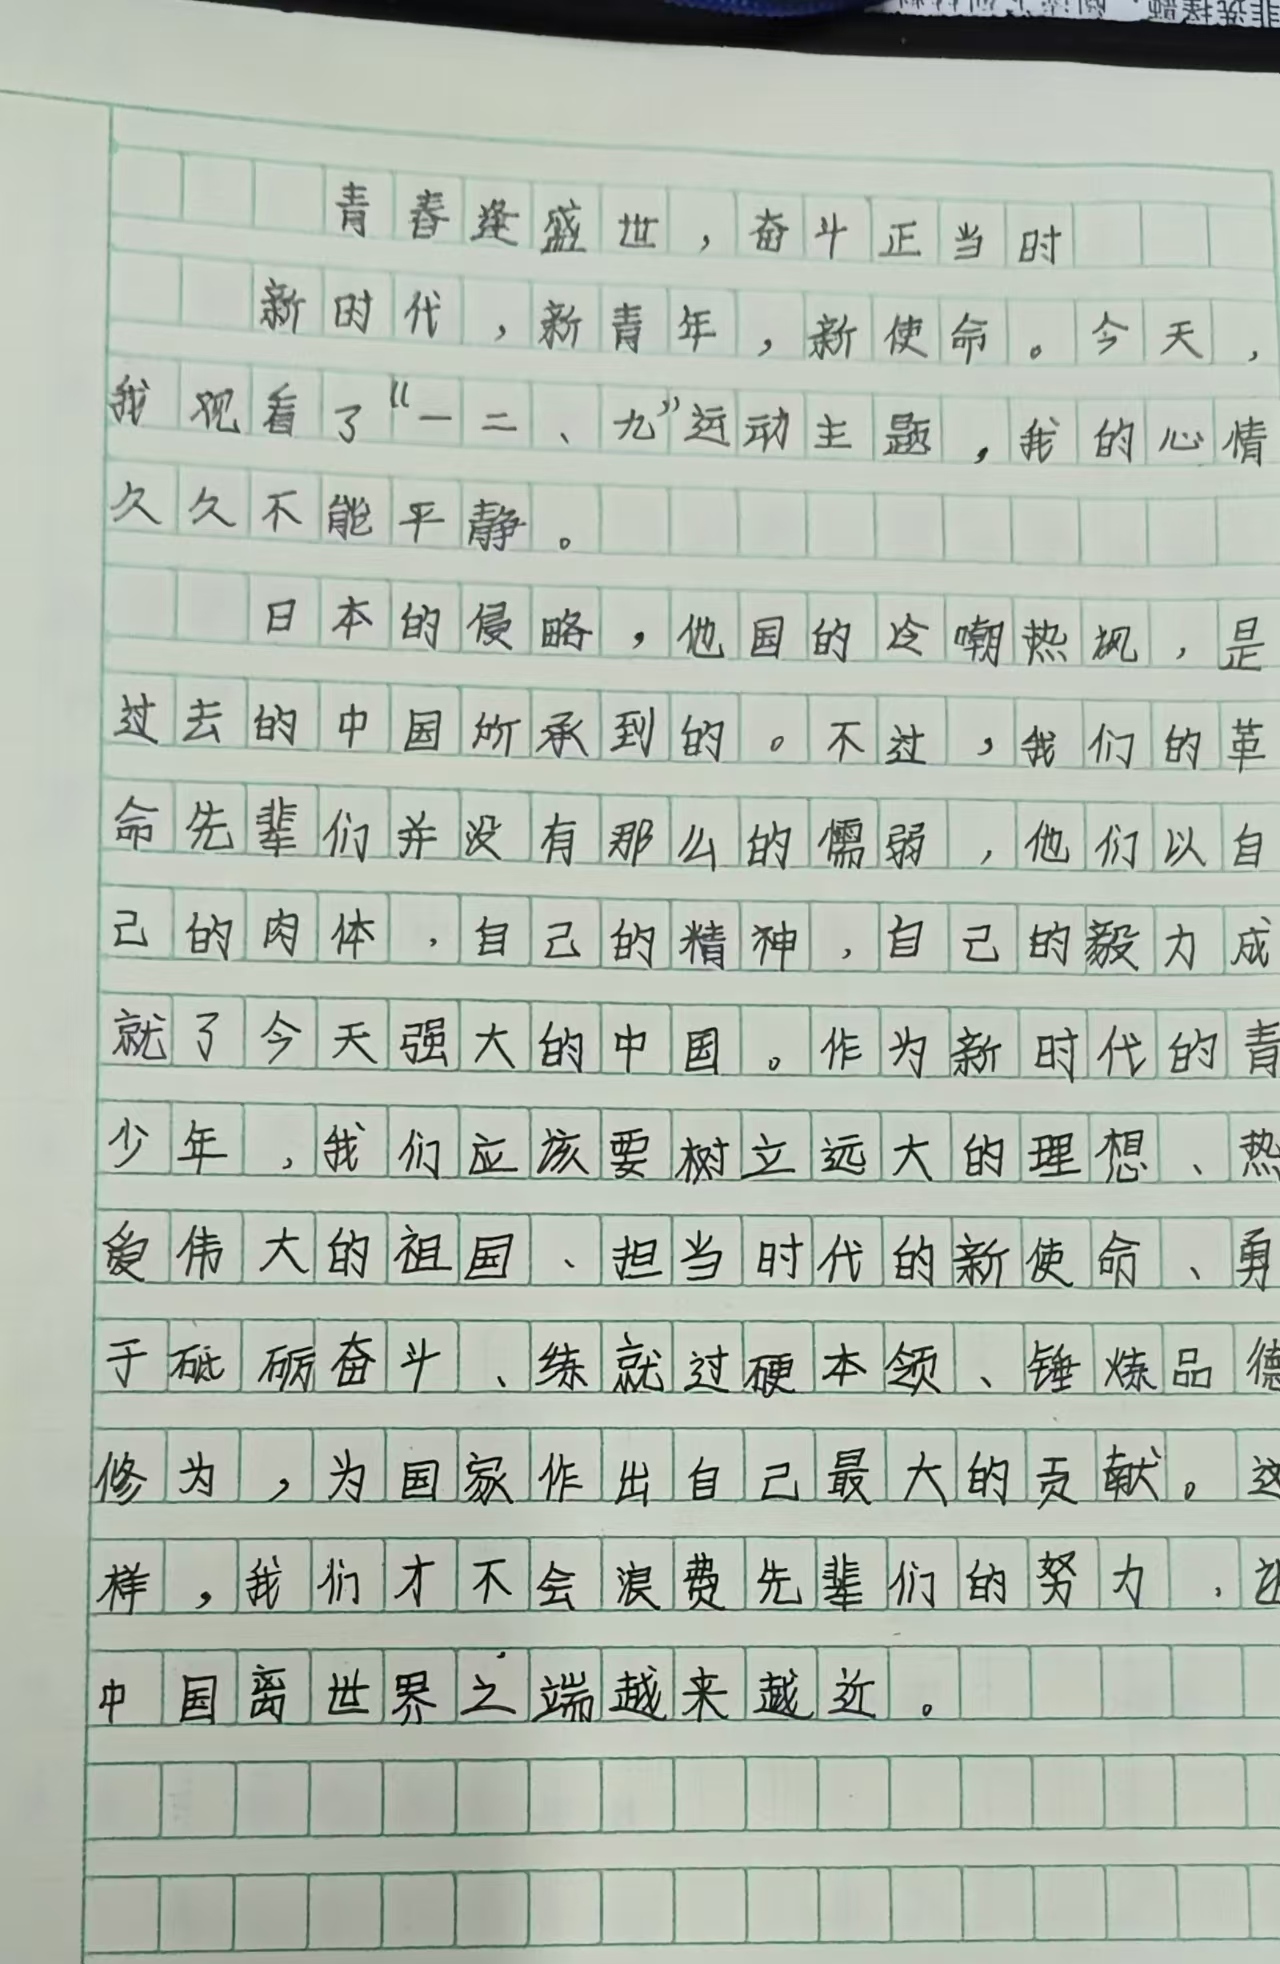 青春逢盛世，奋斗正当时
新时代，新青年，新使命。今天，
我观看了“一二、九”运动主题，我的心情
久久不能平静。
日本的侵略，他国的冷嘲热讽，是
过去的中国所承到的。不过，我们的革
命先辈们并没有那么的懦弱，他们以自
己的肉体，自己的精神，自己的毅力成
就了今天强大的中国。作为新时代的青
少年，我们应该要树立远大的理想、热
爱伟大的祖国、担当时代的新使命、勇
于砥砺奋斗、练就过硬本领、锤炼品德
修为，为国家作出自己最大的贡献。这
样，我们才不会浪费先辈们的努力，
中国离世界之端越来越近。